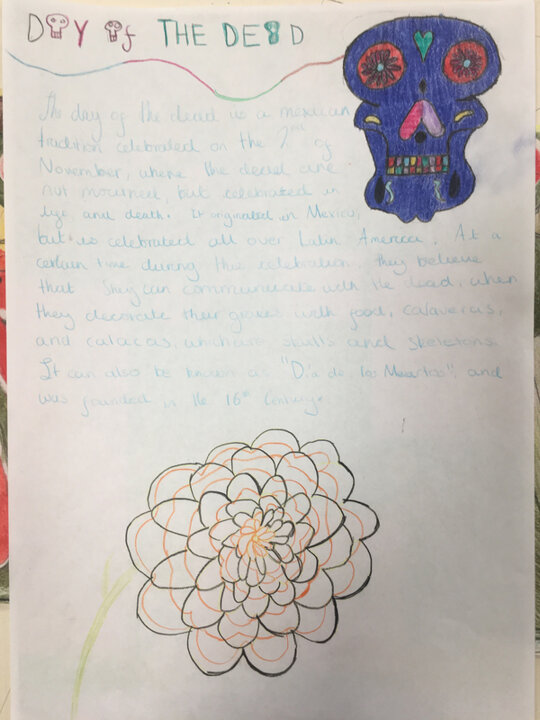 DAY Of THE DEAD
The day of the dead is a mexican
tradition celebrated on the 2nd of
November, where the dead are
not mourned, but celebrated in
life and death. It originated in Mexico,
but is celebrated all over Latin America. At a
certain time during this celebration, they believe
that they can communicate with the dead, when
they decorate their graves with food, calaveras,
and calacas, which are skulls and skeletons.
It can also be known as "Día de los Muertos", and
was founded in the 16th Century.